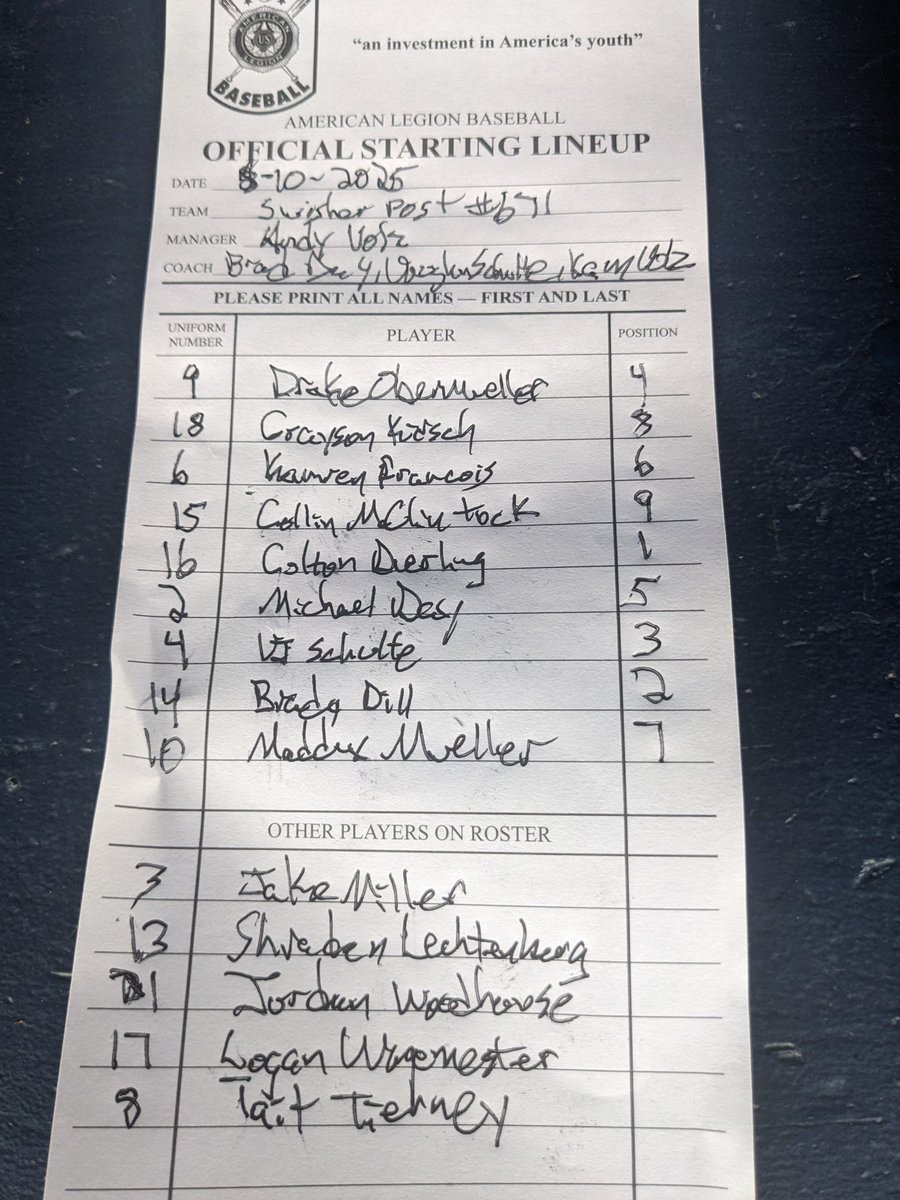 AMERICAN LEGION
US
BASEBALL
"an investment in America's youth"
AMERICAN LEGION BASEBALL
OFFICIAL STARTING LINEUP
DATE 8-10-2025
TEAM Swisher Post #671
MANAGER Andy Volz
COACH Brad Schulte, Kam Volz
PLEASE PRINT ALL NAMES — FIRST AND LAST
UNIFORM NUMBER PLAYER POSITION
9 Drake Obermueller 4
18 Grayson Kirsch 8
6 Kamren Francois 6
15 Collin McClintock 9
16 Colton Dierling 1
2 Michael 5
4 VJ Schulte 3
14 Brady Dill 2
10 Maddux Mueller 7
OTHER PLAYERS ON ROSTER
3 Jake Miller
13 Lechtenberg
Jordan Woodhouse
17 Logan
8 Tait Tierney